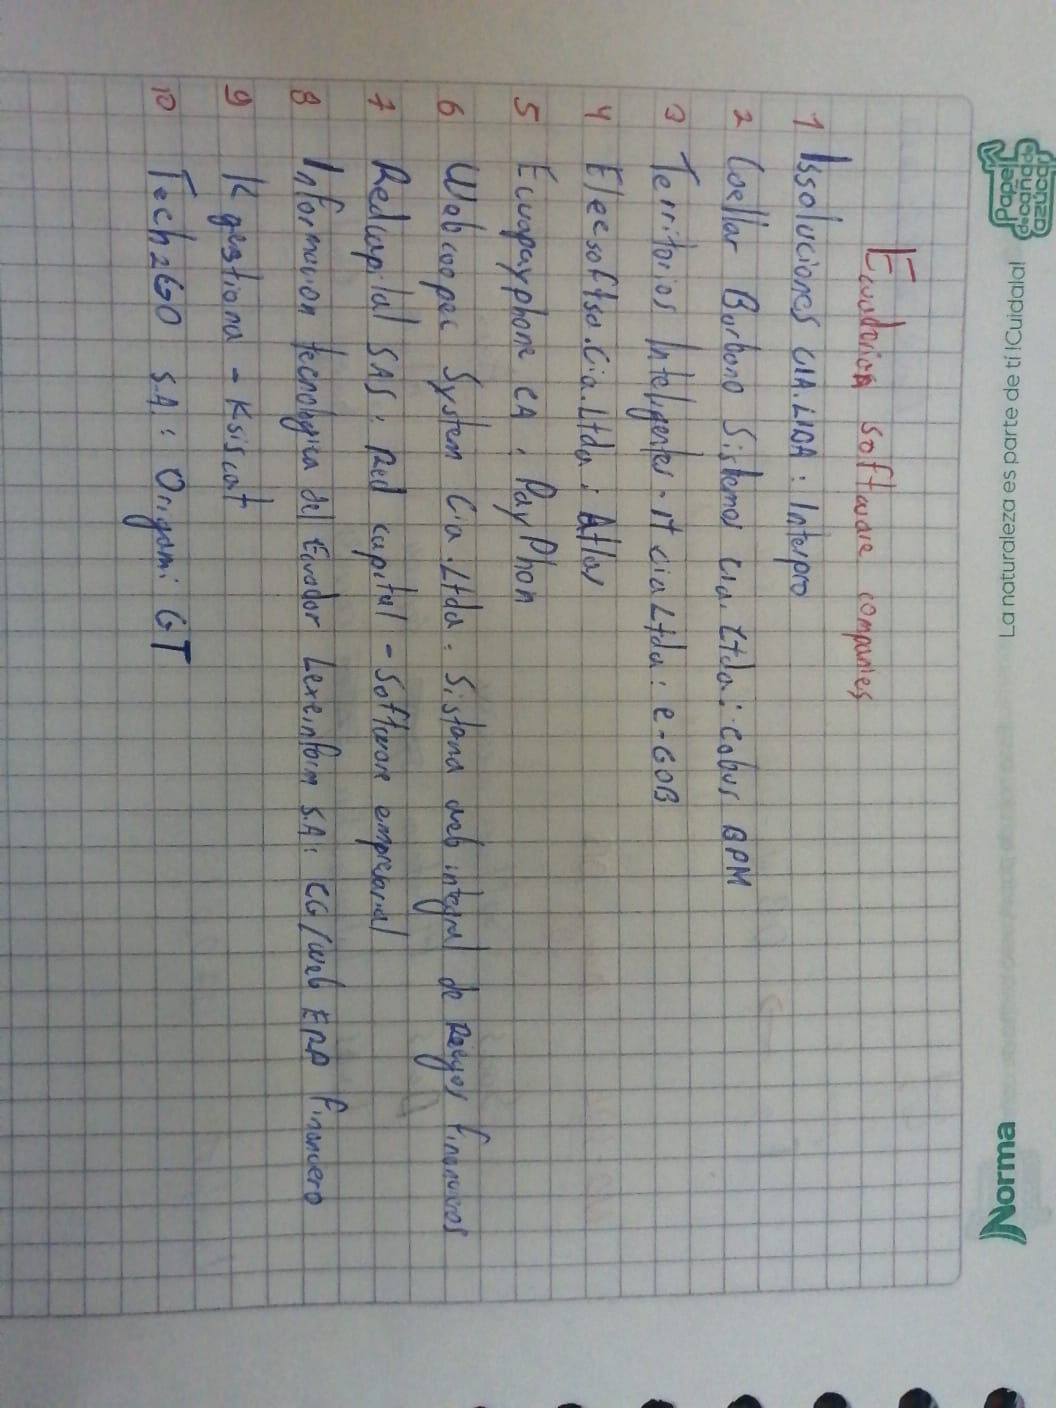 Papel
de caña de
azúcar
La naturaleza es parte de ti ¡Cuidala!
Norma
Ecuadorian software companies
1 Issoluciones CIA.LTDA: Interpro
2 Coellar Borbano Sistemas Cia. Ltda: Cobus BPM
3 Territorios Inteligentes. it cia Ltda: e-GOB
4 Eleesoftsa.Cia.Ltda: Atlas
5 Ecuapayphone CA: PayPhon
6 Webcoopec System Cia.Ltda: Sistema web integral de Riesgos financieros
7 Redcapital SAS: Red capital - Software empresarial
8 Informacion tecnologica del Ecuador Lexeinfoim S.A: CG/web ERP financiero
9 K gestiona - Ksiscat
10 Tech2GO S.A: Origami GT